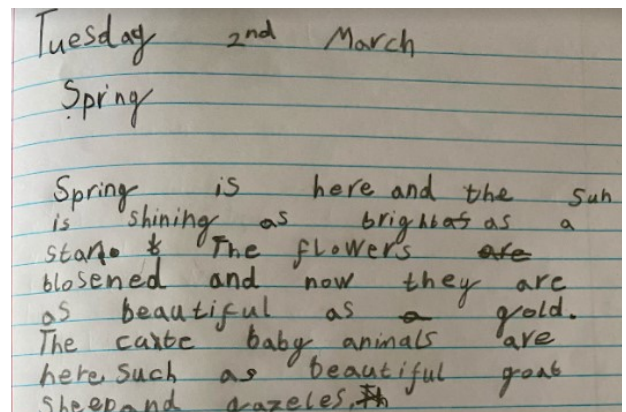 Tuesday 2nd March
Spring
Spring is here and the sun
is shining as bright as a
star. The flowers
blosened and now they are
as beautiful as gold.
The cute baby animals are
here such as beautiful goat
sheep and gazeles.